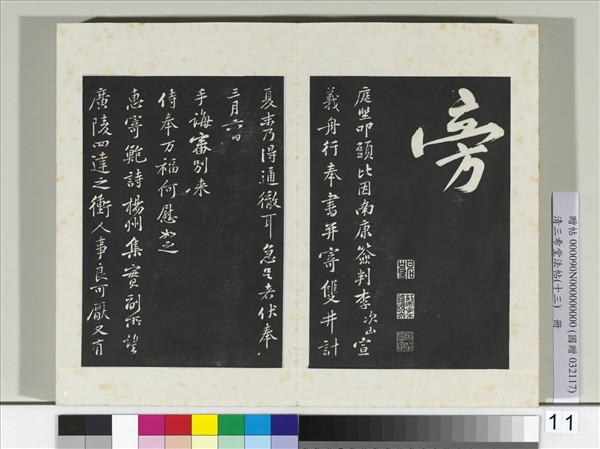 旁
庭堅叩頭比因南康簽判李次山宣
義舟行奉書并寄雙井計
夏末乃得通徹耳急足者伏奉
三月六日
手誨審別来
侍奉万福何慰如之
惠寄鮑詩楊州集實副所望
廣陵四達之衝人事良可厭又有
贈帖 000090N000000000 (國贈 032117)
清三希堂法帖(十三) 冊
11